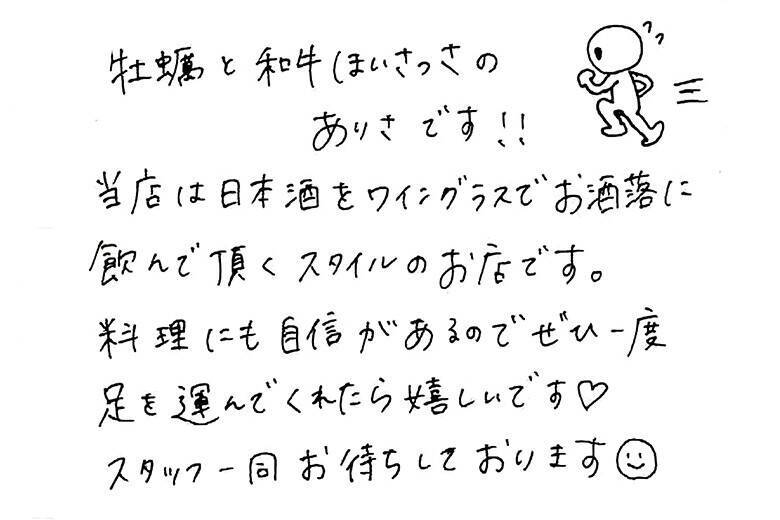 牡蠣と和牛ほいさっさの
ありさです!!
当店は日本酒をワイングラスでお洒落に
飲んで頂くスタイルのお店です。
料理にも自信があるのでぜひ一度
足を運んでくれたら嬉しいです♡
スタッフ一同お待ちしております☺